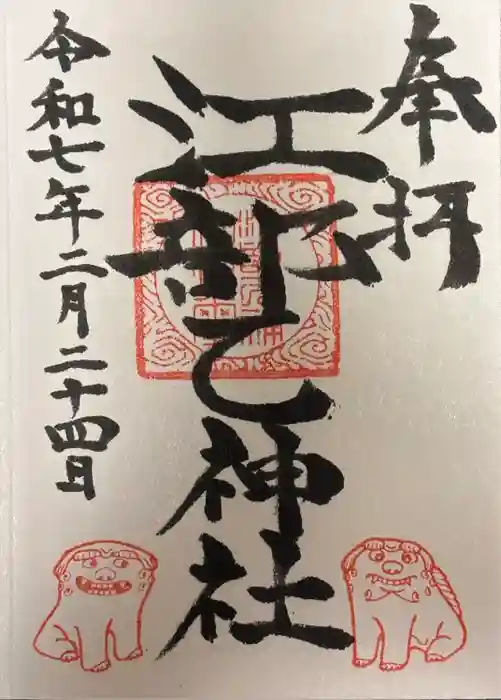 奉拝
江部乙神社
令和七年二月二十四日